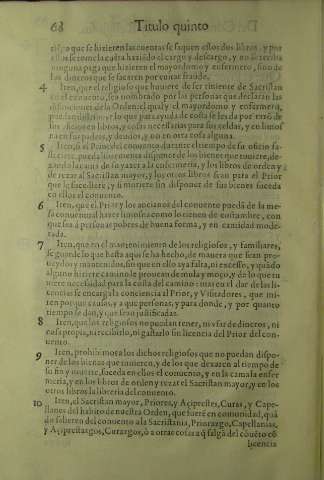 68 Titulo quinto
tiẽpo que se hizieren las cuentas se saquen estos dos libros, y por
ellos se tome la cuẽta haziẽdo el cargo y descargo, y no se reciba
ninguna paga que hizieren el mayordomo y enfermero, sino de
los dineros que se sacaren por euitar fraude.
4 Iten, que el religioso que huuiere de ser tiniente de Sacristan
en el conuento, sea nombrado por las personas que declaran las
difiniciones de la Orden: el qual y el mayordomo y enfermero,
puedan por lo que para ayuda de costa se les da por razõ de
sus oficios en libros, y cosas necessarias para sus celdas, y en limos
na en sus padres, y deudos, y no en otra cosa alguna.
5 Iten, si el Prior del conuento durante el tiempo de su oficio fa-
lleciere, pueda libremente disponer de los bienes que tuuiere, de-
xando la cama de su yazer a la enfermeria, y los libros de orden y
de rezar al Sacristan mayor, y los otros libros sean para el Prior
que le sucediere, y si muriere sin disponer de sus bienes suceda
en ellos el conuento.
6 Iten, que el Prior y los ancianos del conuento puedã de la me-
sa conuentual hazer limosna como lo tienen de costumbre, con
que sea a personas pobres de buena forma, y en cantidad mode-
rada.
7 Iten, que en el mantenimiento de los religiosos, y familiares,
se guarde lo que hasta aqui se ha hecho, de manera que sean pro-
ueydos y mantenidos, sin que en ello aya falta, ni excesso, y quãdo
alguno hiziere camino le prouean de mula y moço, y dẽ lo que tu
uiere necessidad para la costa del camino: mas en el dar de las li-
cencias se encarga la conciencia al Prior, y Visitadores, que mi-
ren porque causas, y a que personas, y para donde, y por quanto
tiempo se dan, y que sean justificadas.
8 Iten, que los religiosos no puedan tener, ni vsar de dineros, ni
cosa propia, ni recibirlo, ni gastarlo sin licencia del Prior del con-
uento.
9 Iten, prohibimos a los dichos religiosos que no puedan dispo-
ner de los bienes que tuuieren, y de los que dexaren al tiempo de
su fin y muerte, suceda en ellos el conuento, y en la cama la enfer
meria, y en los libros de orden y rezar el Sacristan mayor, y en los
otros libros la libreria del conuento.
10 Iten, el Sacristan mayor, Priores, y Aciprestes, Curas, y Cape-
llanes del habito de nuestra Orden, que fuerẽ en comunidad, quã
do salieren del conuento a la Sacristania, Priorazgo, Capellanias,
y Aciprestazgos, Curazgos, ò a otras cosas q̃ salgã del cõuẽto cõ
licencia